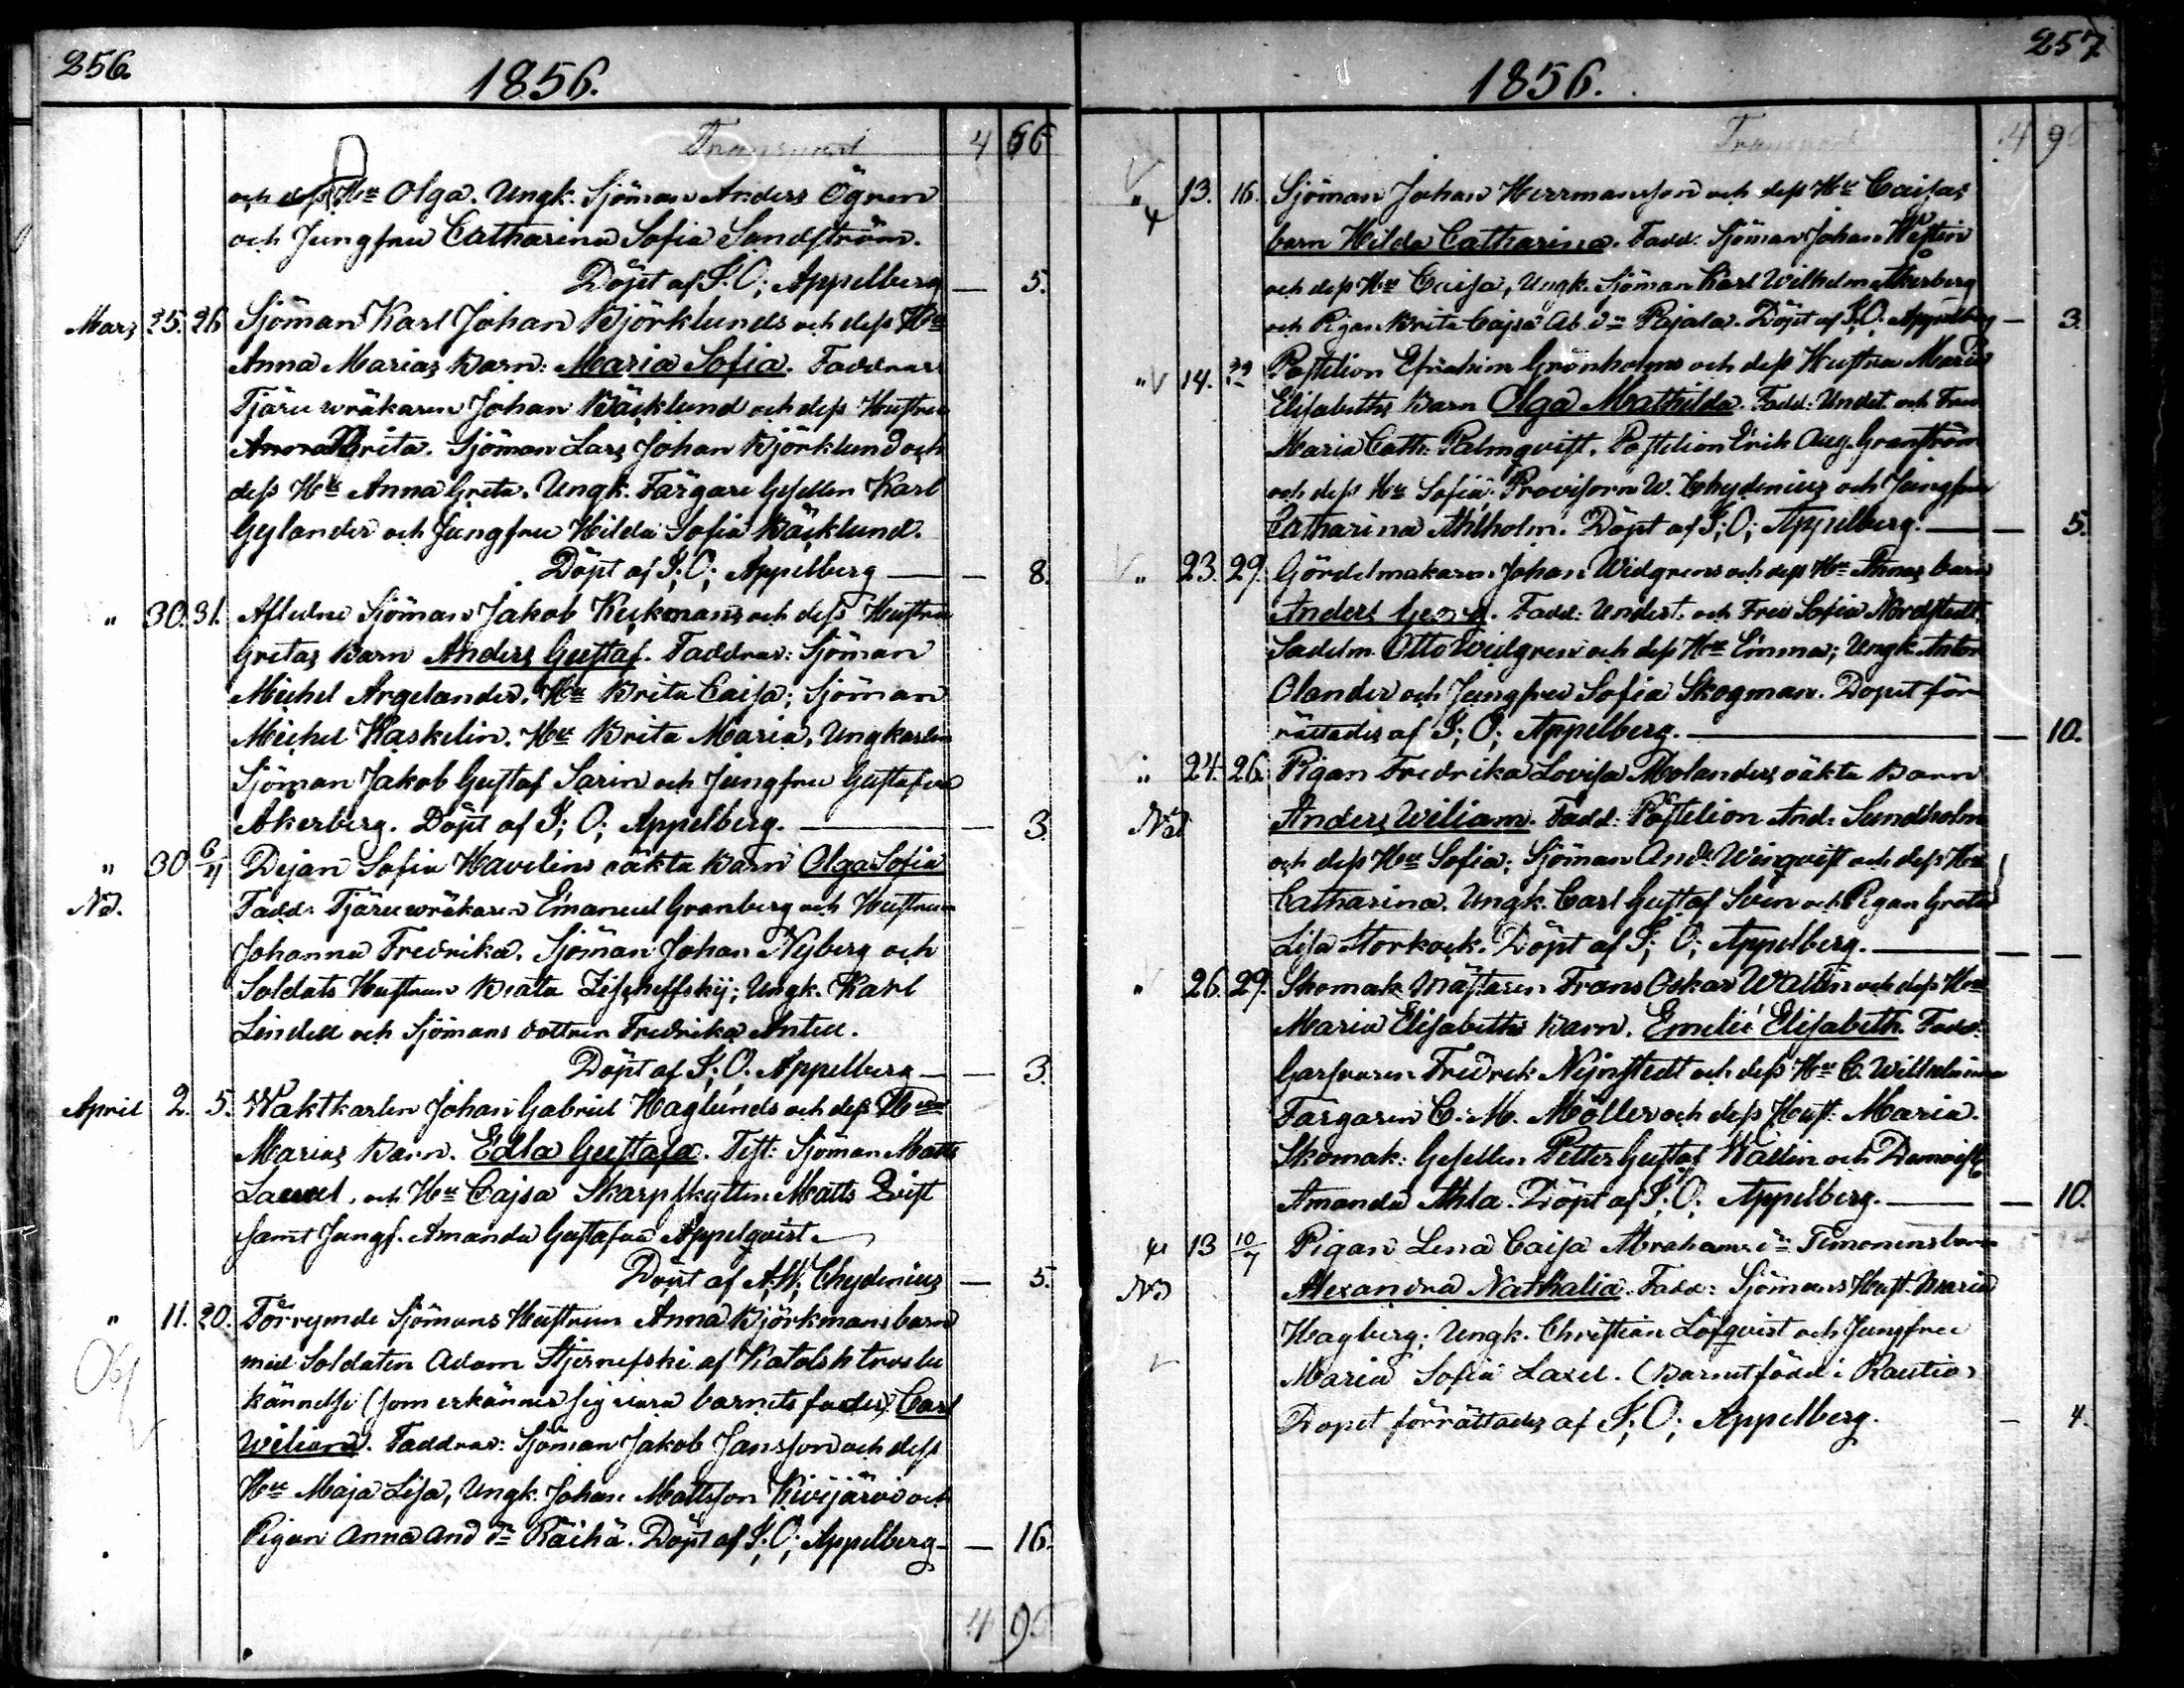 256.
1856.
Transport 4 66
och dess Hu Olga. Ungk. Sjöman Anders Ögren
och Jungfru Catharina Sofia Sandström.
Döpt af J. O; Appelberg — 5.
Mars 25. 26 Sjöman Karl Johan Björklunds och dess Hu
Anna Marias barn: Maria Sofia. Faddrar
Tjäru wräkaren Johan Bäcklund och dess Hustru
Anna Brita. Sjöman Lars Johan Björklund och
dess Hu Anna Greta. Ungk. Färgare Gesellen Karl
Gylander och Jungfru Hilda Sofia Bäcklund.
Döpt af J. O; Appelberg — 8.
" 30. 31. Aflidne Sjöman Jakob Keckmans och dess Hustru
Gretas barn Anders Gustaf. Faddrar: Sjöman
Michel Argelander, Hu Brita Caisa; Sjöman
Michel Kaskelin, Hu Brita Maria, Ungkarlen
Sjöman Jakob Gustaf Sarin och Jungfru Gustafva
Åkerberg. Döpt af J; O; Appelberg. — 3
" 30 6/4 Dejan Sofia Havelins oäkta barn Olga Sofia
Nd. Fadd: Tjäruwräkaren Emanuel Granberg och Hustrun
Johanna Fredrika. Sjöman Johan Nyberg och
Soldats Hustrun Beata ; Ungk. Karl
Lindell och Sjömans dottren Fredrika Antell.
Döpt af J; O; Appelberg — 3.
April 2. 5. Waktkarlen Johan Gabriel Haglunds och dess Hu
Marias barn. Edla Gustafa. Test: Sjöman Matts
Laxel, och Hu Cajsa Skarpskytten Matts Qvist
samt Jungf. Amanda Gustafva Appelqvist.
Döpt af A; W; Chydenius — 5.
" 11. 20. Förrymde Sjömans Hustrun Anna Björkmans barn
med Soldaten Adam Stjernefski af Katolsk trosbe
kännelse (som erkänner sig vara barnets fader) Carl
Wiliam. Faddrar: Sjöman Jakob Jansson och dess
Hu Maja Lisa, Ungk. Johan Mattsson Kivijärvi och
Pigan Anna And dr Räihä. Döpt af J; O; Appelberg — 16.
4 9
257.
1856.
Transport 4 9
" 13. 16. Sjöman Johan Herrmansson och dess Hu Caisas
barn Hilda Catharina. Fadd: Sjöman Johan Westin
och dess Hu Caisa, Ungk. Sjöman Karl Wilhelm Åkerberg
och Pigan Brita Cajsa Ab. dr Pajala. Döpt af J; O. Appelberg — 3.
" 14. Postilion Efrahim Grönholms och dess Hustru Maria
Elisabeths barn Olga Mathilda. Fadd: Undst. och Fru
Maria Cath: Palmqvist. Postilion Erik Aug. Granström
och dess Hu Sofia. Provisorn W. Chydenius och Jungfru
Catharina Ahlholm. Döpt af J; O; Appelberg. — 5.
" 23. 29. Gördelmakaren Johan Widgrens och dess Hu Annas barn
Anders Georg. Fadd: Underst. och Fru Sofia Nordstedt,
Sadelm. Otto Widgren och dess Hu Emma; Ungk. Anton
Olander och Jungfru Sofia Skogman. Dopet för
rättades af J; O; Appelberg. — 10.
" 24. 26. Pigan Fredrika Lovisa Molanders oäkta barn
Nd Anders Wiliam. Fadd: Postilion And: Sundholm
och dess Hu Sofia; Sjöman And: Winqvist och dess Hu
Catharina. Ungk. Carl Gustaf Svin och Pigan Greta
Lisa Storkock. Döpt af J; O; Appelberg. —
" 26. 29. Skomak. Mästaren Frans Oskar Wallin och dess Hu
Maria Elisabeths barn. Emelie Elisabeth. Fadd:
Garfvaren Fredrik Nijnstedt och dess Hu C. Wilhelmina
Färgaren C: M. Möller och dess Hust: Maria.
Skomak: Gesellen Petter Gustaf Wallin och Demoiselle
Amanda Ahla. Döpt af J; O; Appelberg. — 10.
13 10/7 Pigan Lena Caisa Abrahams dr Timonens barn
Nd Alexandra Nathalia. Fadd: Sjömans Hust. Maria
Hagberg; Ungk. Christian Löfqvist och Jungfru
Maria Sofia Laxel. (Barnet född i Rautio)
Dopet förrättades af J; O; Appelberg. — 4.